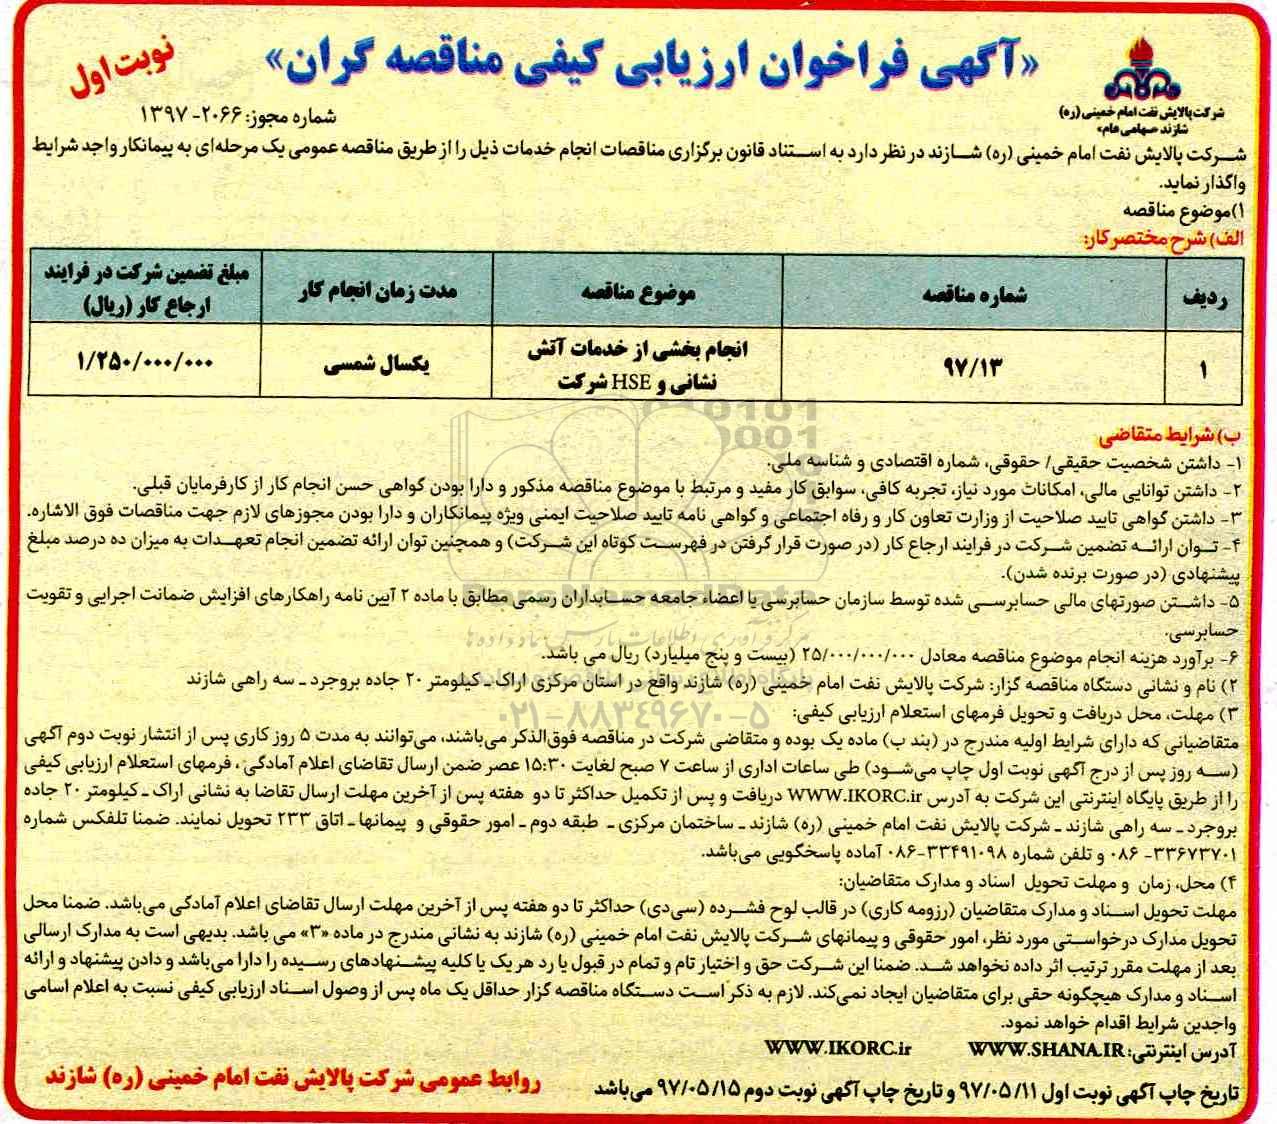 «آگهی فراخوان ارزیابی کیفی مناقصه گران»
نوبت اول
شرکت پالایش نفت امام خمینی (ره)
شازند «سهامی عام»
شماره مجوز: ۲۰۶۶- ۱۳۹۷
شرکت پالایش نفت امام خمینی (ره) شازند در نظر دارد به استناد قانون برگزاری مناقصات انجام خدمات ذیل را از طریق مناقصه عمومی یک مرحله‌ای به پیمانکار واجد شرایط
واگذار نماید.
۱)موضوع مناقصه
الف) شرح مختصر کار:
ردیف	شماره مناقصه	موضوع مناقصه	مدت زمان انجام کار	مبلغ تضمین شرکت در فرایند ارجاع کار (ریال)
۱	۹۷/۱۳	انجام بخشی از خدمات آتش نشانی و HSE شرکت	یکسال شمسی	۱/۲۵۰/۰۰۰/۰۰۰
ب) شرایط متقاضی
۱- داشتن شخصیت حقیقی/ حقوقی، شماره اقتصادی و شناسه ملی.
۲- داشتن توانایی مالی، امکانات مورد نیاز، تجربه کافی، سوابق کار مفید و مرتبط با موضوع مناقصه مذکور و دارا بودن گواهی حسن انجام کار از کارفرمایان قبلی.
۳- داشتن گواهی تایید صلاحیت از وزارت تعاون کار و رفاه اجتماعی و گواهی نامه تایید صلاحیت ایمنی ویژه پیمانکاران و دارا بودن مجوزهای لازم جهت مناقصات فوق الاشاره.
۴- توان ارائه تضمین شرکت در فرایند ارجاع کار (در صورت قرار گرفتن در فهرست کوتاه این شرکت) و همچنین توان ارائه تضمین انجام تعهدات به میزان ده درصد مبلغ
پیشنهادی (در صورت برنده شدن).
۵- داشتن صورتهای مالی حسابرسی شده توسط سازمان حسابرسی یا اعضاء جامعه حسابداران رسمی مطابق با ماده ۲ آیین نامه راهکارهای افزایش ضمانت اجرایی و تقویت
حسابرسی.
۶- برآورد هزینه انجام موضوع مناقصه معادل ۲۵/۰۰۰/۰۰۰/۰۰۰ (بیست و پنج میلیارد) ریال می باشد.
۲) نام و نشانی دستگاه مناقصه گزار: شرکت پالایش نفت امام خمینی (ره) شازند واقع در استان مرکزی اراک ـ کیلومتر ۲۰ جاده بروجرد ـ سه راهی شازند
۰۲۱-۸۸۳۴۹۶۷۰-۵
۳) مهلت، محل دریافت و تحویل فرمهای استعلام ارزیابی کیفی:
متقاضیانی که دارای شرایط اولیه مندرج در (بند ب) ماده یک بوده و متقاضی شرکت در مناقصه فوق‌الذکر می‌باشند، می‌توانند به مدت ۵ روز کاری پس از انتشار نوبت دوم آگهی
(سه روز پس از درج آگهی نوبت اول چاپ می‌شود) طی ساعات اداری از ساعت ۷ صبح لغایت ۱۵:۳۰ عصر ضمن ارسال تقاضای اعلام آمادگی، فرمهای استعلام ارزیابی کیفی
را از طریق پایگاه اینترنتی این شرکت به آدرس WWW.IKORC.ir دریافت و پس از تکمیل حداکثر تا دو هفته پس از آخرین مهلت ارسال تقاضا به نشانی اراک ـ کیلومتر ۲۰ جاده
بروجرد ـ سه راهی شازند ـ شرکت پالایش نفت امام خمینی (ره) شازند ـ ساختمان مرکزی ـ طبقه دوم ـ امور حقوقی و پیمانها ـ اتاق ۲۳۳ تحویل نمایند. ضمنا تلفکس شماره
۳۳۶۷۳۷۰۱- ۰۸۶ و تلفن شماره ۳۳۴۹۱۰۹۸-۰۸۶ آماده پاسخگویی می‌باشد.
۴) محل، زمان و مهلت تحویل اسناد و مدارک متقاضیان:
مهلت تحویل اسناد و مدارک متقاضیان (رزومه کاری) در قالب لوح فشرده (سی‌دی) حداکثر تا دو هفته پس از آخرین مهلت ارسال تقاضای اعلام آمادگی می‌باشد. ضمنا محل
تحویل مدارک درخواستی مورد نظر، امور حقوقی و پیمانهای شرکت پالایش نفت امام خمینی (ره) شازند به نشانی مندرج در ماده «۳» می باشد. بدیهی است به مدارک ارسالی
بعد از مهلت مقرر ترتیب اثر داده نخواهد شد. ضمنا این شرکت حق و اختیار تام و تمام در قبول یا رد هر یک یا کلیه پیشنهادهای رسیده را دارا می‌باشد و دادن پیشنهاد و ارائه
اسناد و مدارک هیچگونه حقی برای متقاضیان ایجاد نمی‌کند. لازم به ذکر است دستگاه مناقصه گزار حداقل یک ماه پس از وصول اسناد ارزیابی کیفی نسبت به اعلام اسامی
واجدین شرایط اقدام خواهد نمود.
آدرس اینترنتی: WWW.SHANA.IR WWW.IKORC.ir
تاریخ چاپ آگهی نوبت اول ۹۷/۰۵/۱۱ و تاریخ چاپ آگهی نوبت دوم ۹۷/۰۵/۱۵ می‌باشد
روابط عمومی شرکت پالایش نفت امام خمینی (ره) شازند